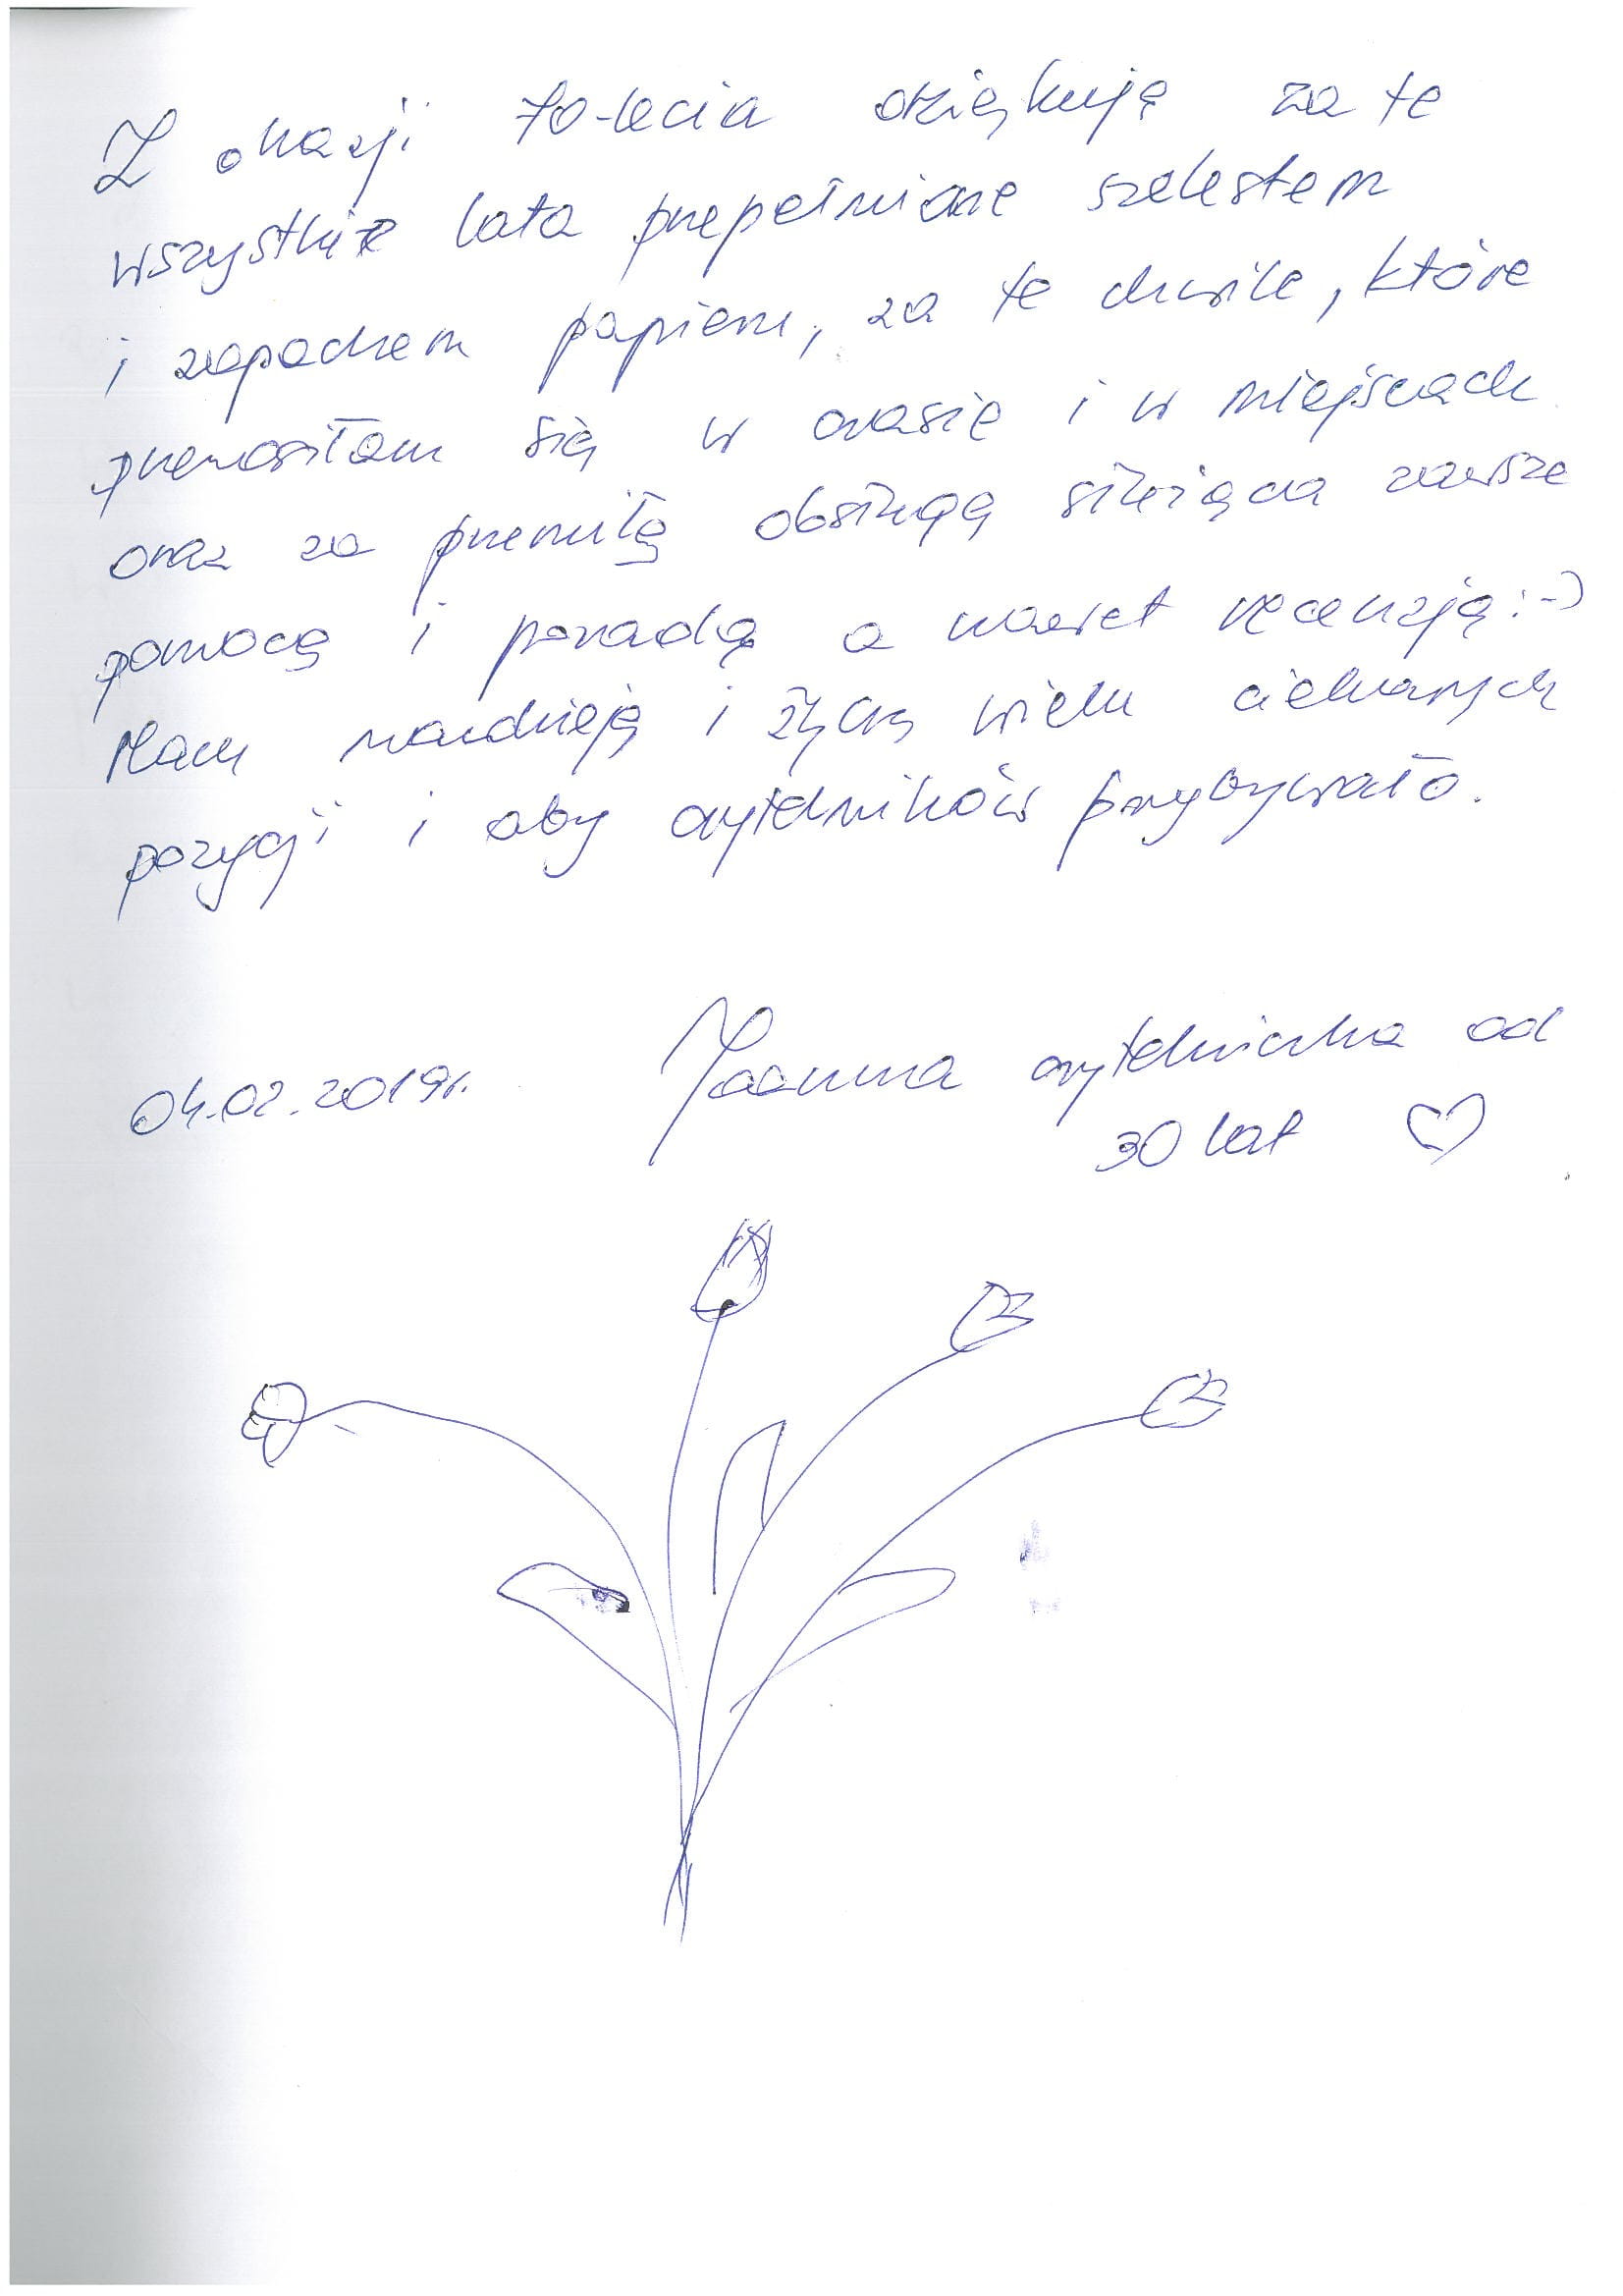 Z okazji 70-lecia dziękuję za te
wszystkie lata przepełnione szelestem
i zapachem papieru, za te chwile, które
przenosiłam się w czasie i w miejscach
oraz za przemiłą obsługę służącą zawsze
pomocą i poradą a nawet recenzją :-)
Mam nadzieję i życzę wielu ciekawych
pozycji i aby czytelników przybywało.
04.02.2019r. Joanna czytelniczka od
30 lat ♡